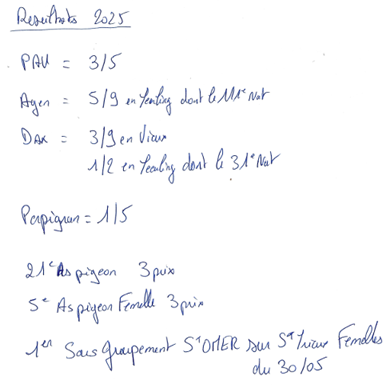 Resultats 2025
PAU = 3/5
Agen = 5/9 en Yearling dont le 111e Nat
DAX = 3/9 en Vieux
1/2 en Yearling dont le 31e Nat
Perpignan = 1/5
21e As pigeon 3 prix
5e As pigeon Femelle 3 prix
1er Sous Groupement St OMER sur St Vieux Femelles
du 30/05